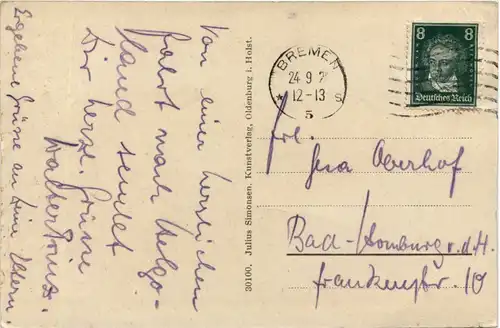 Von einer herrlichen
Fahrt nach Helgo-
land sendet
Dir herzl. Grüße
Walter
Ergebene Grüße an Deine Eltern.
30100. Julius Simonsen, Kunstverlag, Oldenburg i. Holst.
BREMEN
24.9.2
12-13 S
* 5
8 8
Deutsches Reich
Frl.
Oberhof
Bad-Homburg v.d.H.
Frankenstr. 10